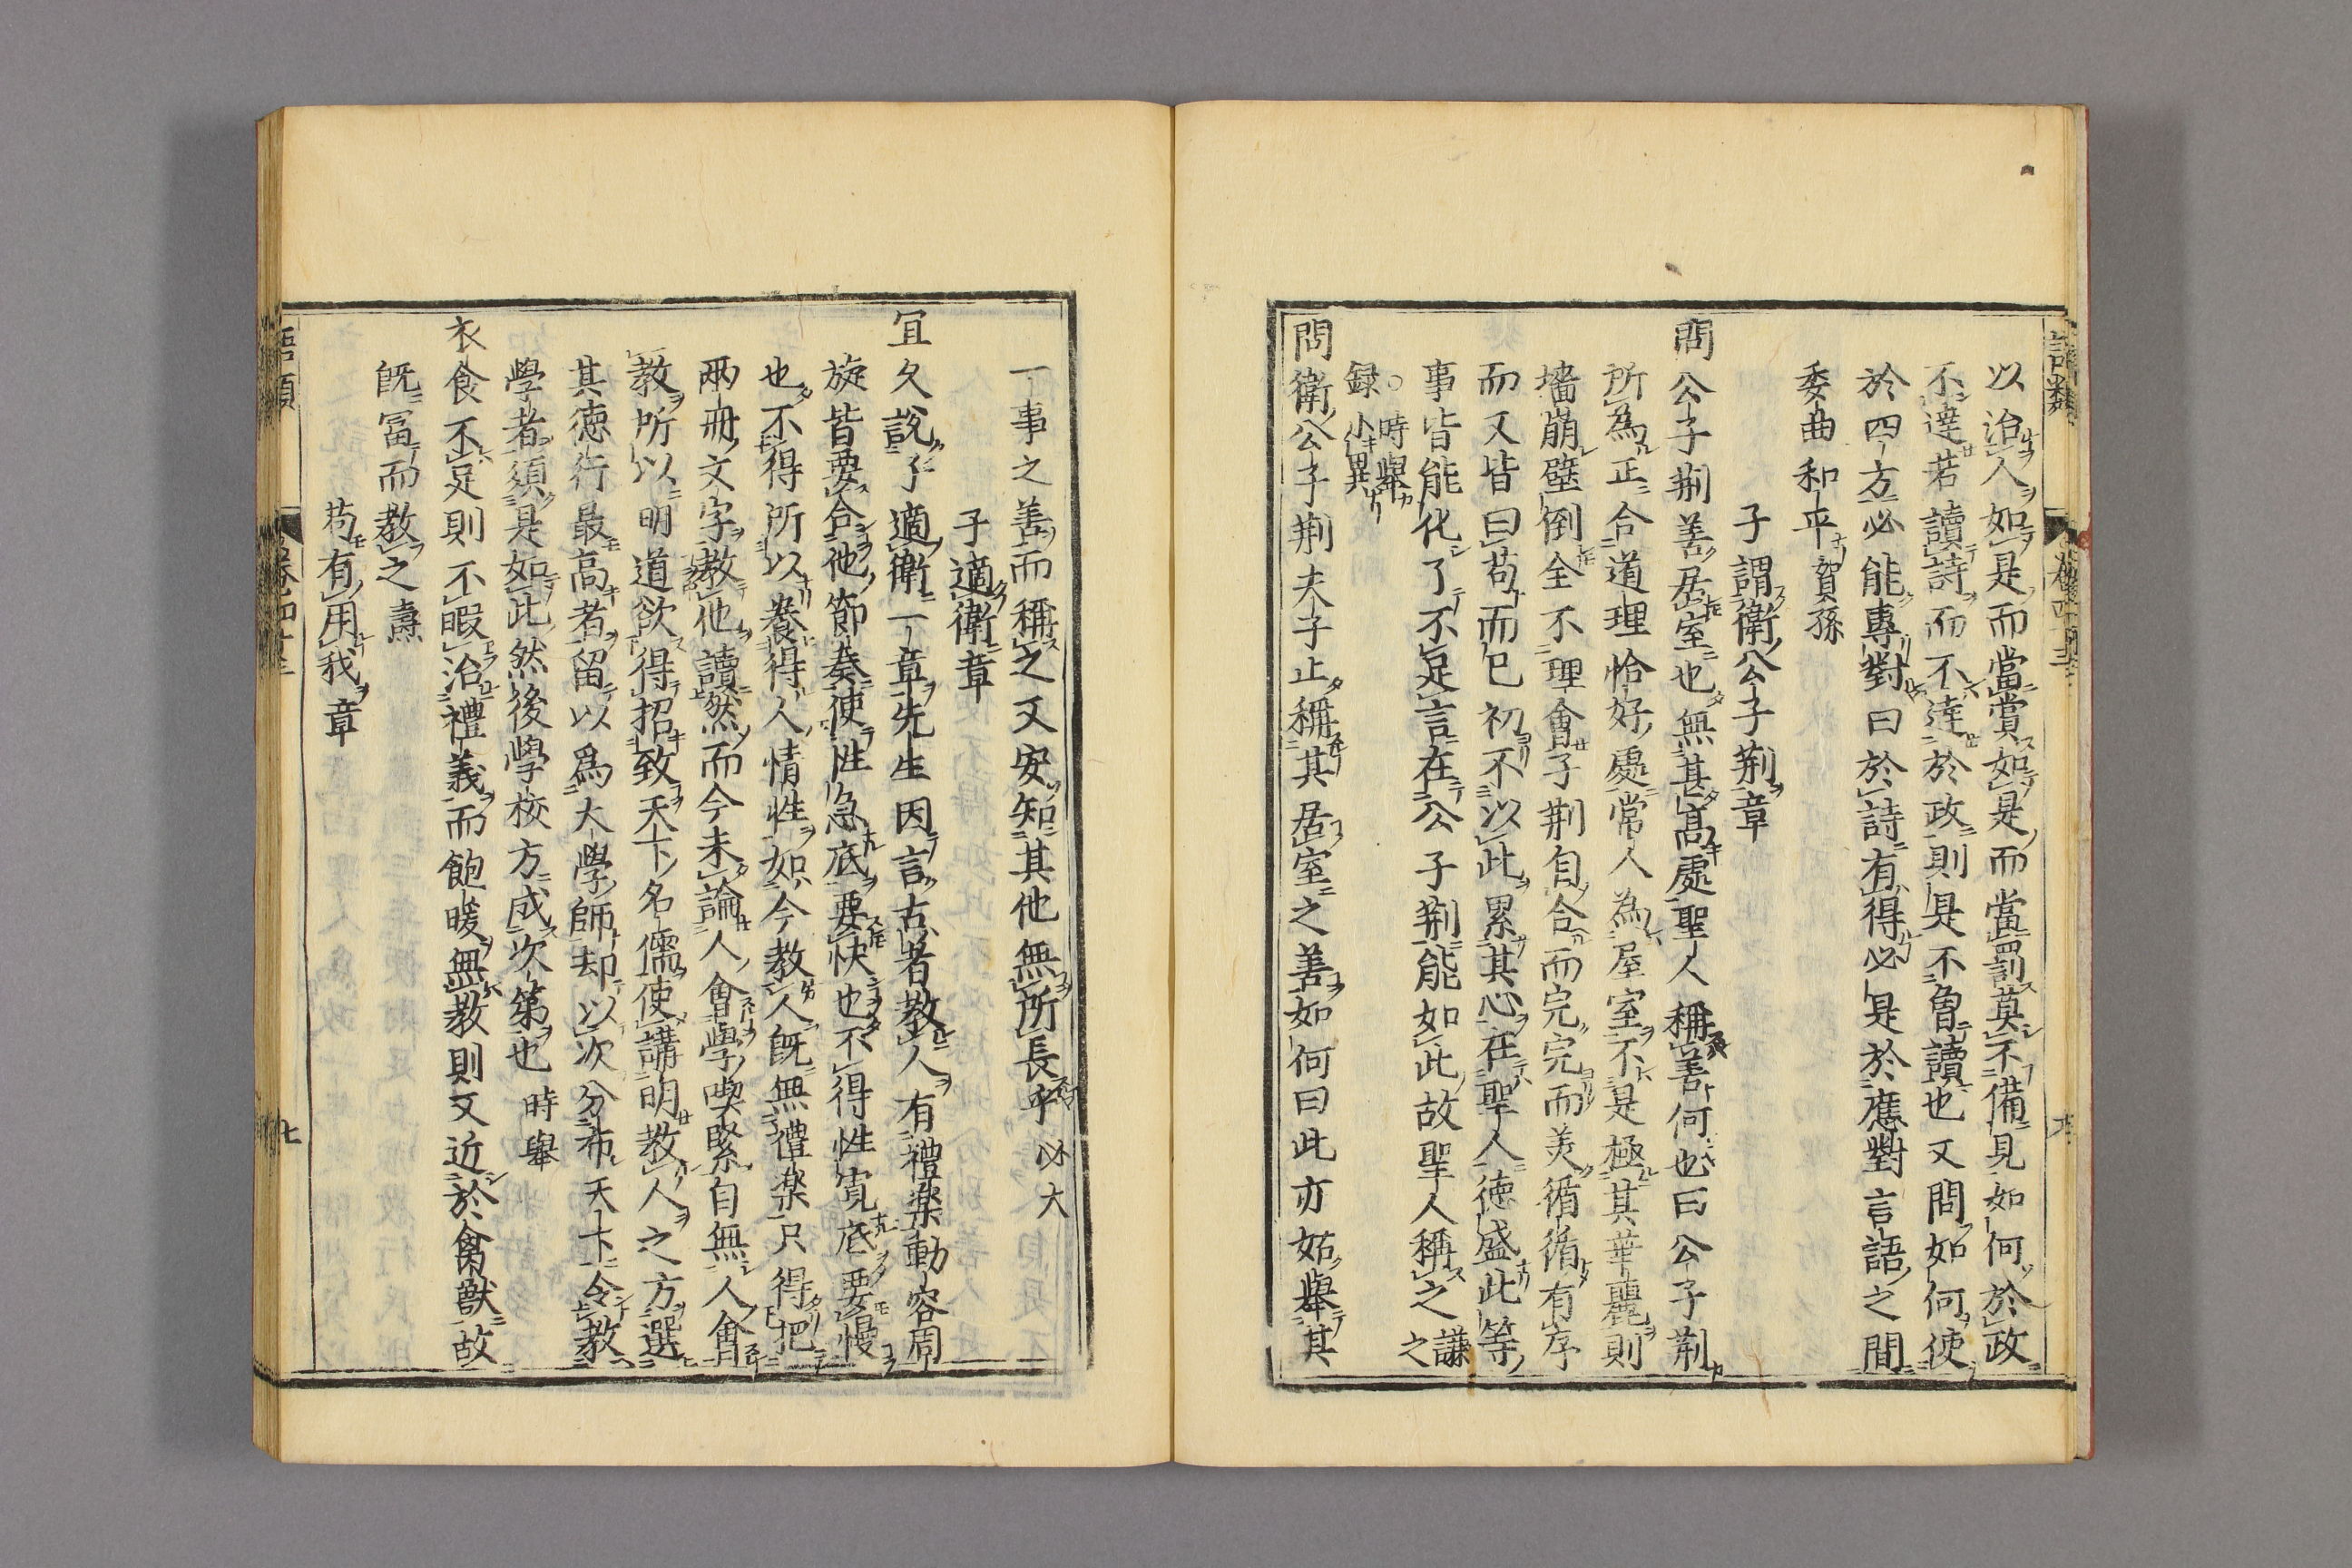 語類
卷四十三
以治人如是而當賞如是而當罰莫不備見如何於政
不達若讀詩而不達於政則是不魯讀也又問如何使
於四方必能專對曰於詩有得必是於應對言語之間
委曲和平賀孫
子謂衛公子荆章
問公子荆善居室也無甚高處聖人稱善何也曰公子荆
所為正合道理恰好處常人為屋室不是極其華麗則
墻崩壁倒全不理會子荆自合而完完而美循循有序
而又皆曰苟而已初不以此累其心在聖人徳盛此等
事皆能化了不足言在公子荆能如此故聖人稱之謙之
録○時舉小異
問衛公子荆夫子止稱其居室之善如何曰此亦姑舉其
一事之善而稱之又安知其他無所長乎必大
子適衛章
冝久說子適衛一章先生因言古者教人有禮楽動容周
旋皆要合他節奏使性急底要快也不得性寛底要慢
也不得所以養得人情性如今教人既無禮楽只得把
兩冊文字教他讀然而今未論人會學喫緊自無人會
教所以明道欲得招致天下名儒使講明教人之方選
其徳行最高者留以爲大學師却以次分布天下令教
學者須是如此然後學校方成次第也時舉
衣食不足則不暇治禮義而飽暖無教則又近於禽獸故
既冨而教之壽
苟有用我章
語類
卷四十三
七